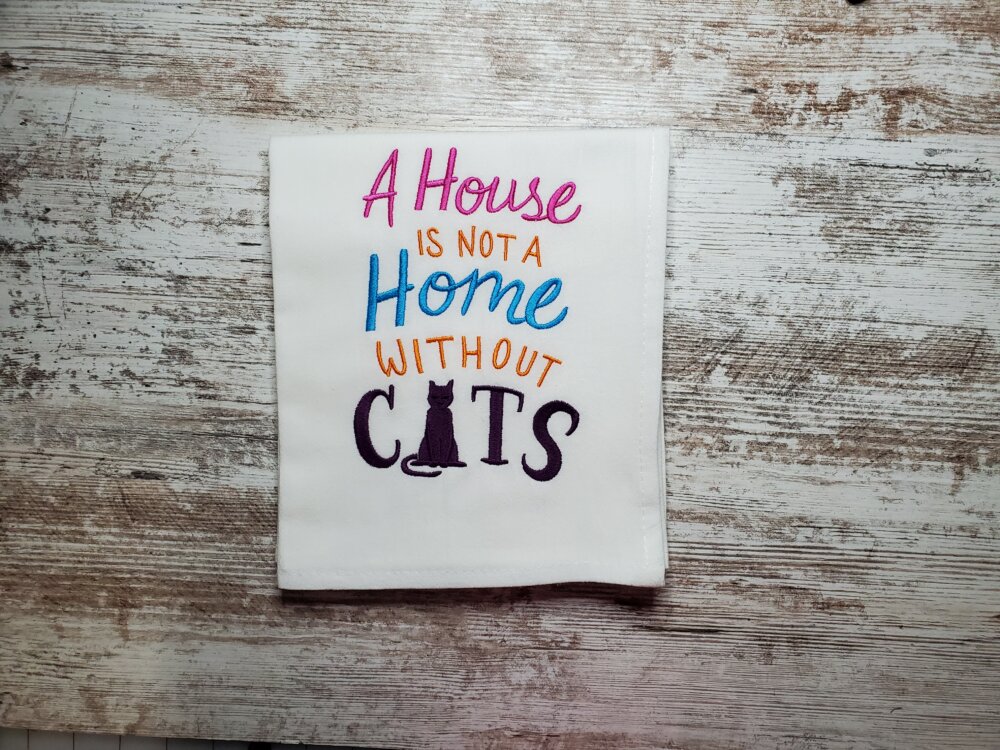 A House
IS NOT A
Home
WITHOUT
CATS